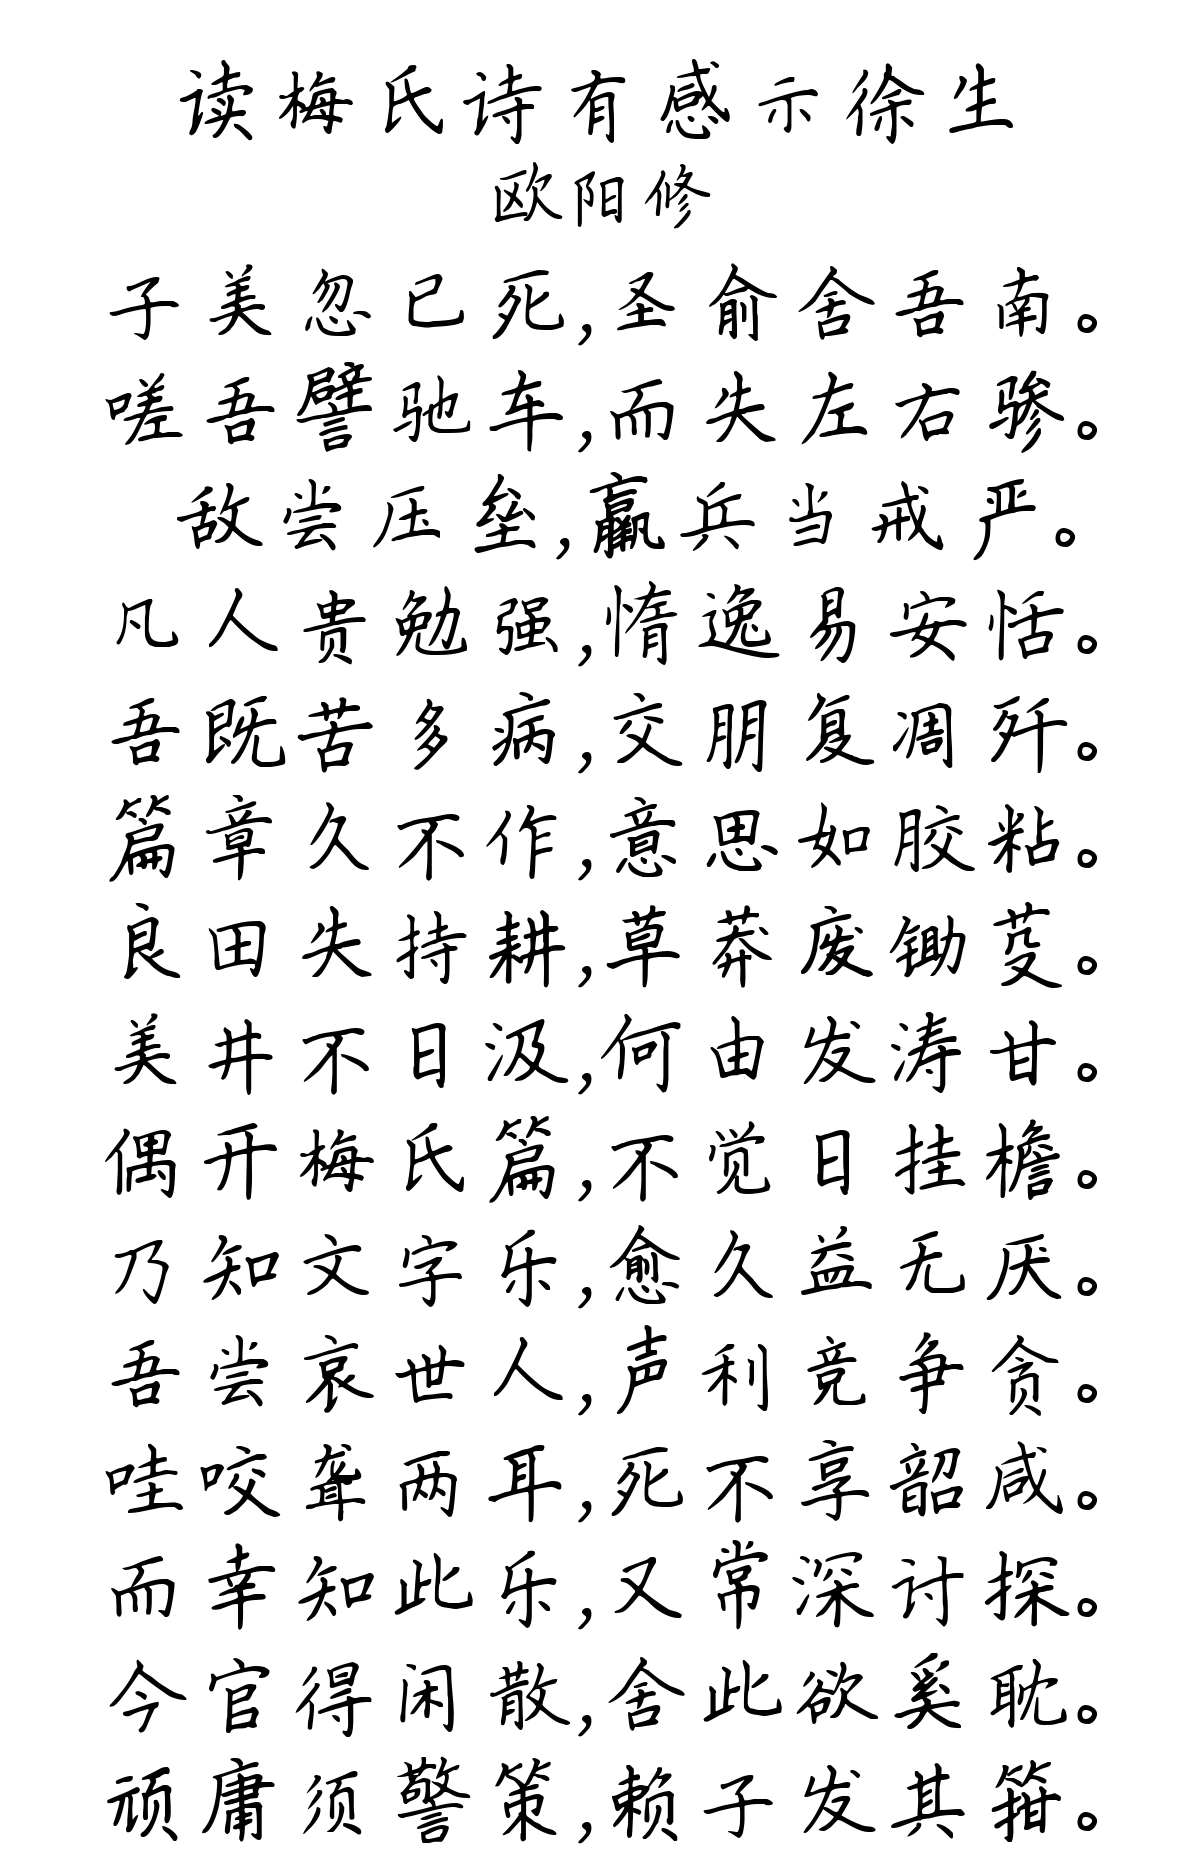 读梅氏诗有感示徐生
欧阳修
子美忽已死,圣俞舍吾南。
嗟吾譬驰车,而失左右骖。
敌尝压垒,羸兵当戒严。
凡人贵勉强,惰逸易安恬。
吾既苦多病,交朋复凋歼。
篇章久不作,意思如胶粘。
良田失持耕,草莽废锄芟。
美井不日汲,何由发涛甘。
偶开梅氏篇,不觉日挂檐。
乃知文字乐,愈久益无厌。
吾尝哀世人,声利竞争贪。
哇咬聋两耳,死不享韶咸。
而幸知此乐,又常深讨探。
今官得闲散,舍此欲奚耽。
顽庸须警策,赖子发其箝。